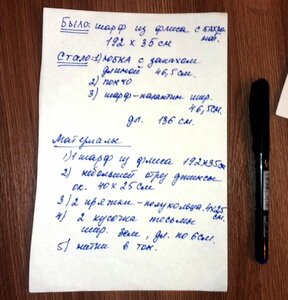 Было: шарф из флиса с
192 x 35 см
Стало: 1) юбка с запахом
длиной 46,5 см.
2) пончо
3) шарф-палантин шир.
46,5 см.
дл. 136 см.
Материалы
1) 1 шарф из флиса 192x35 см
2) небольшой отрез джинсы
ок. 40 x 25 см
3) 2 пряжки-полукольца 4x25 см.
4) 2 кусочка тесьмы
шир. 2см, дл. по 6 см.
5) нитки в тон.